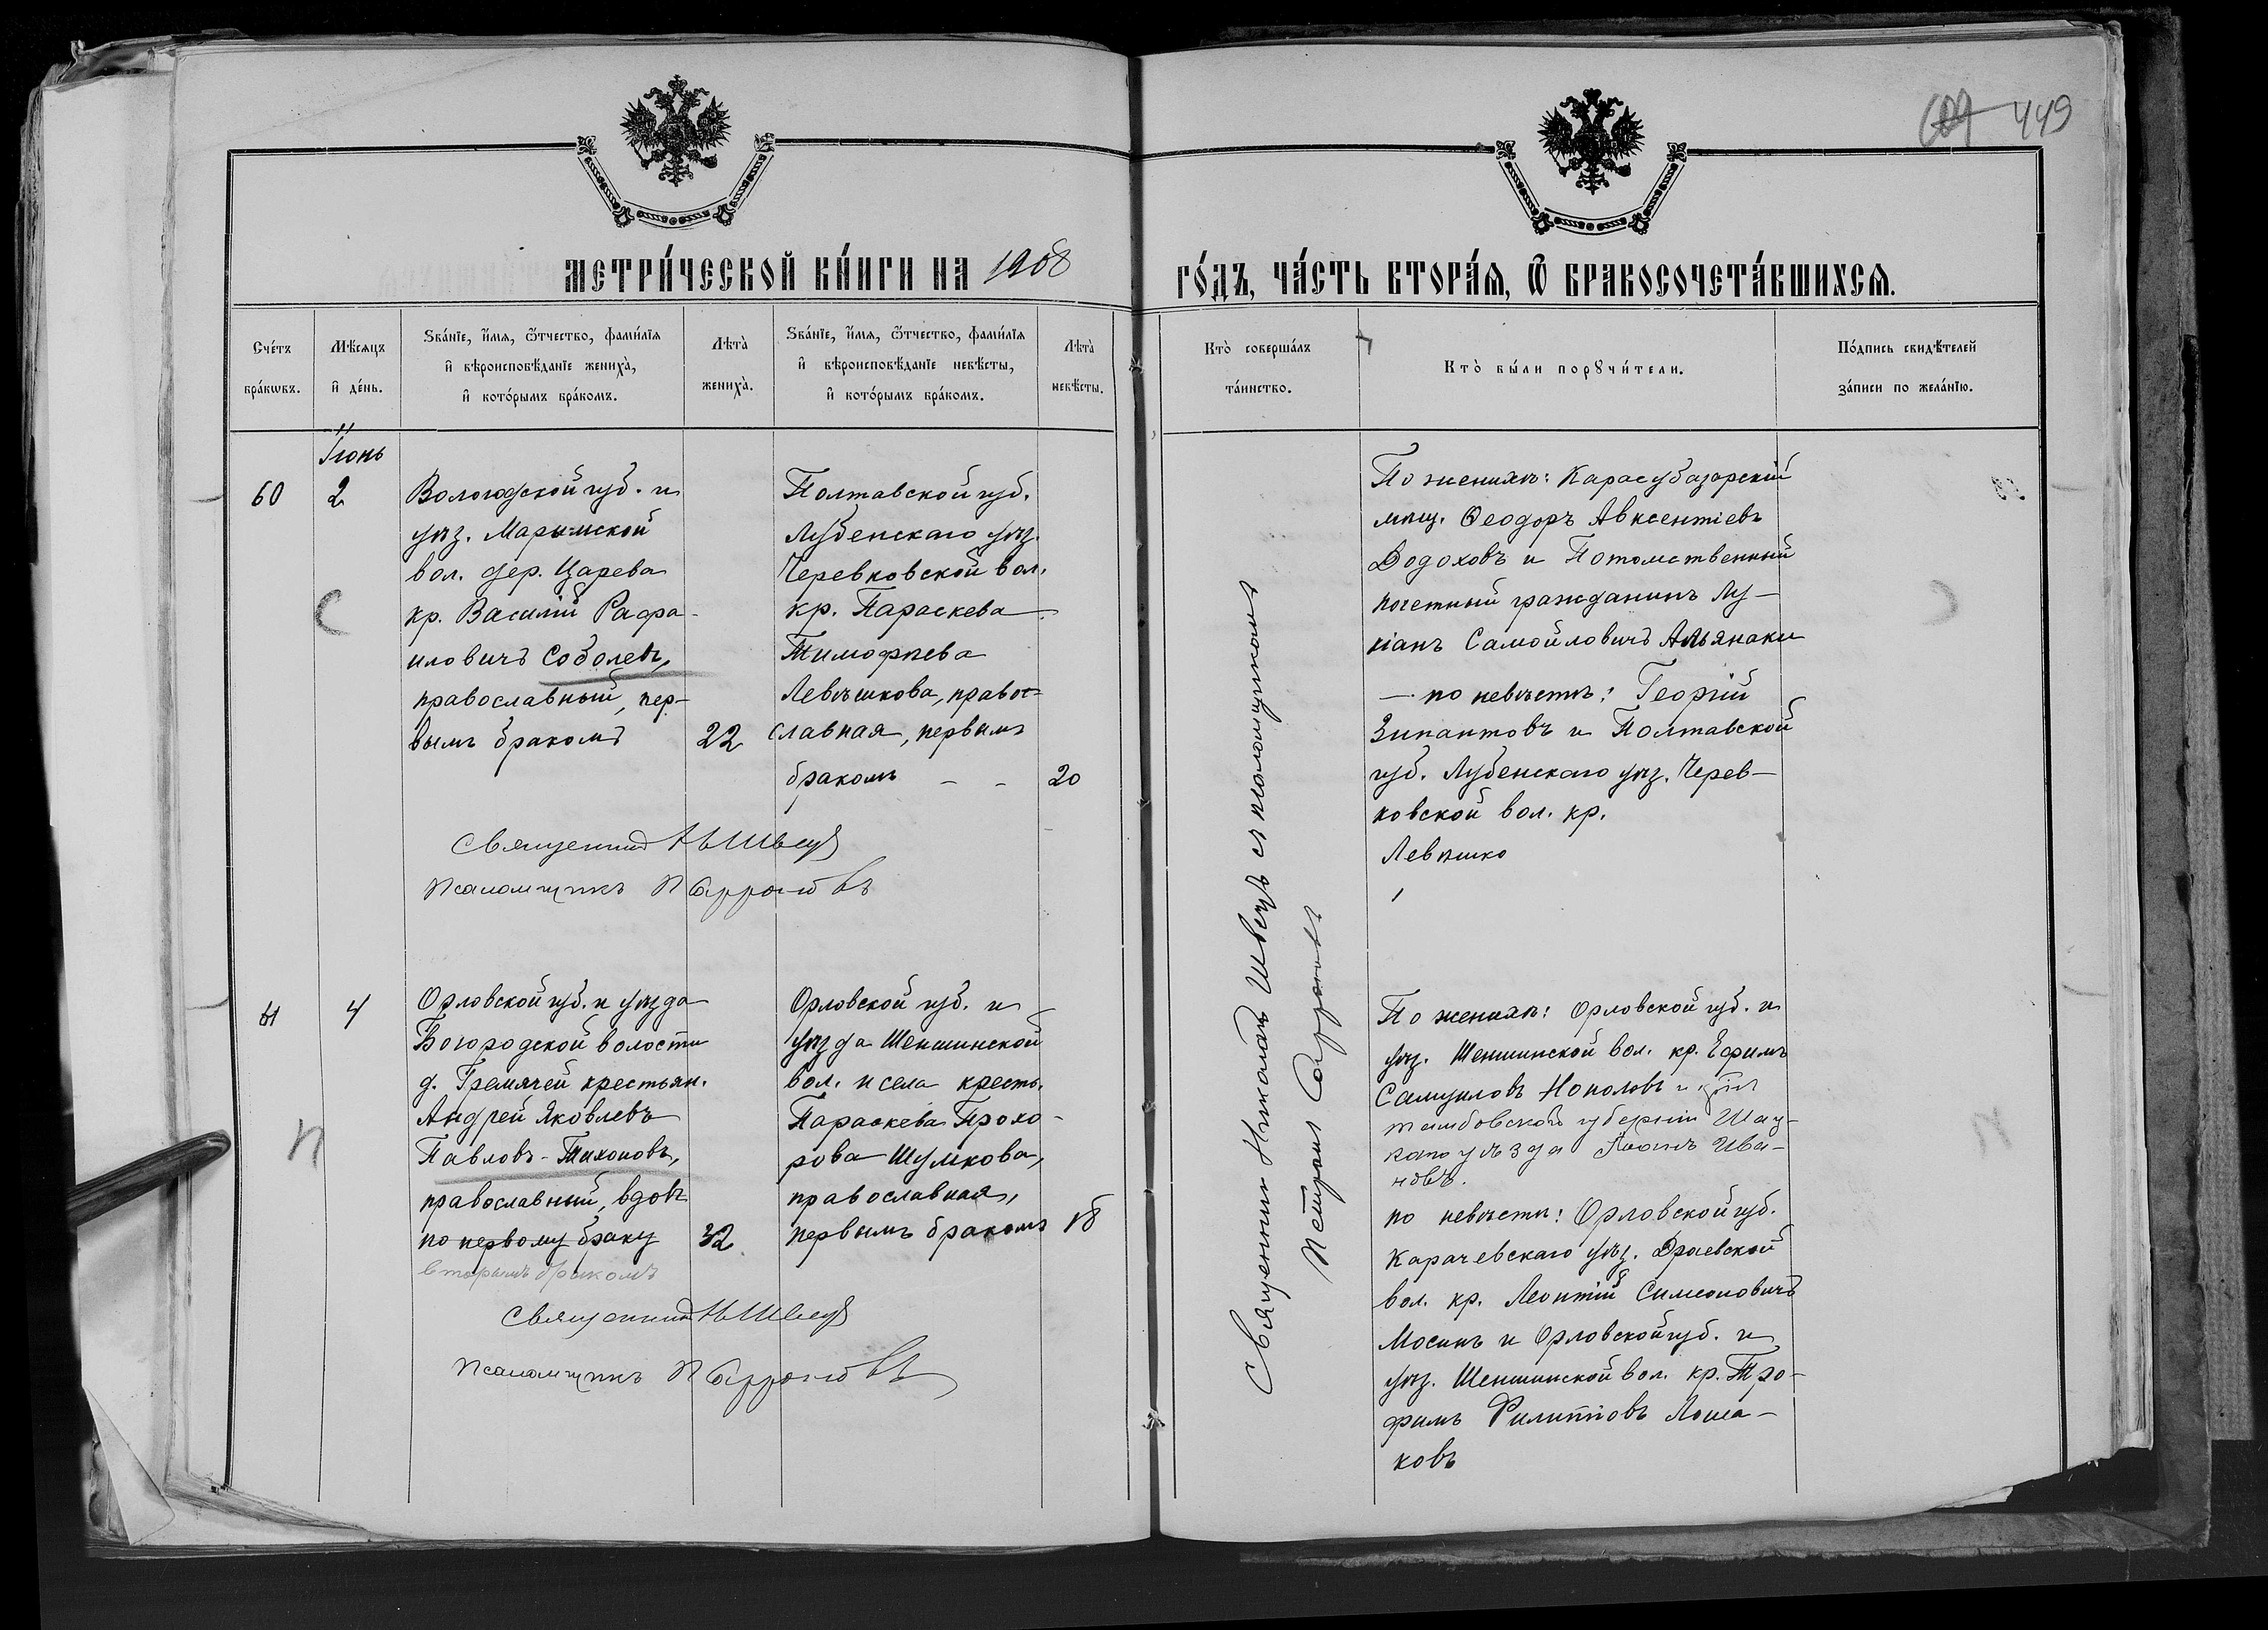 449
МЕТРИ́ЧЕСКОЙ КНИ́ГИ НА 1908
ГО́ДЪ, ЧА́СТЬ ВТОРА́Я, Ѿ БРАКОСОЧЕТА́ВШИХСЯ.
Сче́тъ
бра́кѡвъ.
Мѣ́сяцъ
и҆ де́нь.
Ѕва́нїе, и҆́мя, ѻ҆́тчество, фами́лїя
и҆ вѣроисповѣ́данїе жениха̀,
и҆ кото́рымъ бра́комъ.
Лѣта̀
жениха̀.
Ѕва́нїе, и҆́мя, ѻ҆́тчество, фами́лїя
и҆ вѣроисповѣ́данїе невѣ́сты,
и҆ кото́рымъ бра́комъ.
Лѣта̀
невѣ́сты.
Кто̀ соверша́лъ
та́инство.
Кто̀ бы́ли порꙋчи́тели.
По́дпись свидѣ́телей
за́писи по жела́нїю.
Іюнь
60
2
С
Вологодской губ. и
уѣз.
вол. дер. Царева
кр. Василій Рафа-
иловичъ Соболевъ,
православный, пер-
вымъ бракомъ
22
Полтавской губ.
Лубенскаго уѣз.
Черевковской вол.
кр. Параскева
Тимофѣева
Левѣшкова, правос-
славная, первымъ
бракомъ
20
Священникъ Н Швецъ
Псаломщикъ П Сафроновъ
По женихѣ: Карасубазарскій
мѣщ. Ѳеодоръ Авксентіевъ
и Потомственный
почетный гражданинъ Лу-
кіанъ Самойловичъ Альянаки
— по невѣстѣ: Георгій
Зипантовъ и Полтавской
губ. Лубенскаго уѣз. Черев-
ковской вол. кр.
Левѣшко
Священникъ Николай Швецъ съ псаломщикомъ
Петромъ
61
4
П
Орловской губ. и уѣзда
Богородской волости
д. Гремячей крестьян.
Андрей Яковлевъ
Павловъ-Тихоновъ,
православный, вдовъ
по первому браку
вторымъ бракомъ
32
Орловской губ. и
уѣзда Шеншинской
вол. и села кресть.
Параскева Прохо-
рова Шумкова,
православная,
первымъ бракомъ
18
Священникъ Н Швецъ
Псаломщикъ П Сафроновъ
По женихѣ: Орловской губ. и
уѣз. Шеншинской вол. кр. Ефимъ
Самуиловъ Нополовъ и
тамбовской губерніи Шац-
каго уѣзда Іоанъ Ива-
новъ.
по невѣстѣ: Орловской губ.
Карачевскаго уѣз. Драевской
вол. кр. Леонтій Симеоновичъ
Мосинъ и Орловской губ. и
уѣз. Шеншинской вол. кр. Тро-
фимъ Филиповъ Лоша-
ковъ